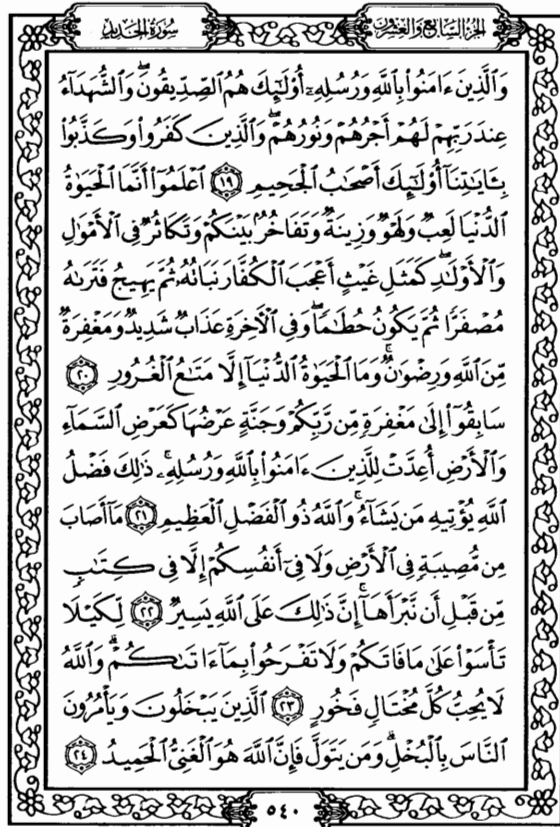 الجزء السابع والعشرون
سورة الحديد
وَالَّذِينَ ءَامَنُوا۟ بِاللَّهِ وَرُسُلِهِۦٓ أُو۟لَٰٓئِكَ هُمُ الصِّدِّيقُونَ ۖ وَالشُّهَدَآءُ
عِندَ رَبِّهِمْ لَهُمْ أَجْرُهُمْ وَنُورُهُمْ ۖ وَالَّذِينَ كَفَرُوا۟ وَكَذَّبُوا۟
بِـَٔايَٰتِنَآ أُو۟لَٰٓئِكَ أَصْحَٰبُ الْجَحِيمِ ۝١٩ اعْلَمُوٓا۟ أَنَّمَا الْحَيَوٰةُ
الدُّنْيَا لَعِبٌ وَلَهْوٌ وَزِينَةٌ وَتَفَاخُرٌۢ بَيْنَكُمْ وَتَكَاثُرٌ فِى الْأَمْوَٰلِ
وَالْأَوْلَٰدِ ۖ كَمَثَلِ غَيْثٍ أَعْجَبَ الْكُفَّارَ نَبَاتُهُۥ ثُمَّ يَهِيجُ فَتَرَىٰهُ
مُصْفَرًّا ثُمَّ يَكُونُ حُطَٰمًا ۖ وَفِى الْءَاخِرَةِ عَذَابٌ شَدِيدٌ وَمَغْفِرَةٌ
مِّنَ اللَّهِ وَرِضْوَٰنٌ ۚ وَمَا الْحَيَوٰةُ الدُّنْيَآ إِلَّا مَتَٰعُ الْغُرُورِ ۝٢٠
سَابِقُوٓا۟ إِلَىٰ مَغْفِرَةٍ مِّن رَّبِّكُمْ وَجَنَّةٍ عَرْضُهَا كَعَرْضِ السَّمَآءِ
وَالْأَرْضِ أُعِدَّتْ لِلَّذِينَ ءَامَنُوا۟ بِاللَّهِ وَرُسُلِهِۦ ۚ ذَٰلِكَ فَضْلُ
اللَّهِ يُؤْتِيهِ مَن يَشَآءُ ۚ وَاللَّهُ ذُو الْفَضْلِ الْعَظِيمِ ۝٢١ مَآ أَصَابَ
مِن مُّصِيبَةٍ فِى الْأَرْضِ وَلَا فِىٓ أَنفُسِكُمْ إِلَّا فِى كِتَٰبٍ
مِّن قَبْلِ أَن نَّبْرَأَهَآ ۚ إِنَّ ذَٰلِكَ عَلَى اللَّهِ يَسِيرٌ ۝٢٢ لِّكَيْلَا
تَأْسَوْا۟ عَلَىٰ مَا فَاتَكُمْ وَلَا تَفْرَحُوا۟ بِمَآ ءَاتَىٰكُمْ ۗ وَاللَّهُ
لَا يُحِبُّ كُلَّ مُخْتَالٍ فَخُورٍ ۝٢٣ الَّذِينَ يَبْخَلُونَ وَيَأْمُرُونَ
النَّاسَ بِالْبُخْلِ ۗ وَمَن يَتَوَلَّ فَإِنَّ اللَّهَ هُوَ الْغَنِىُّ الْحَمِيدُ ۝٢٤
٥٤٠